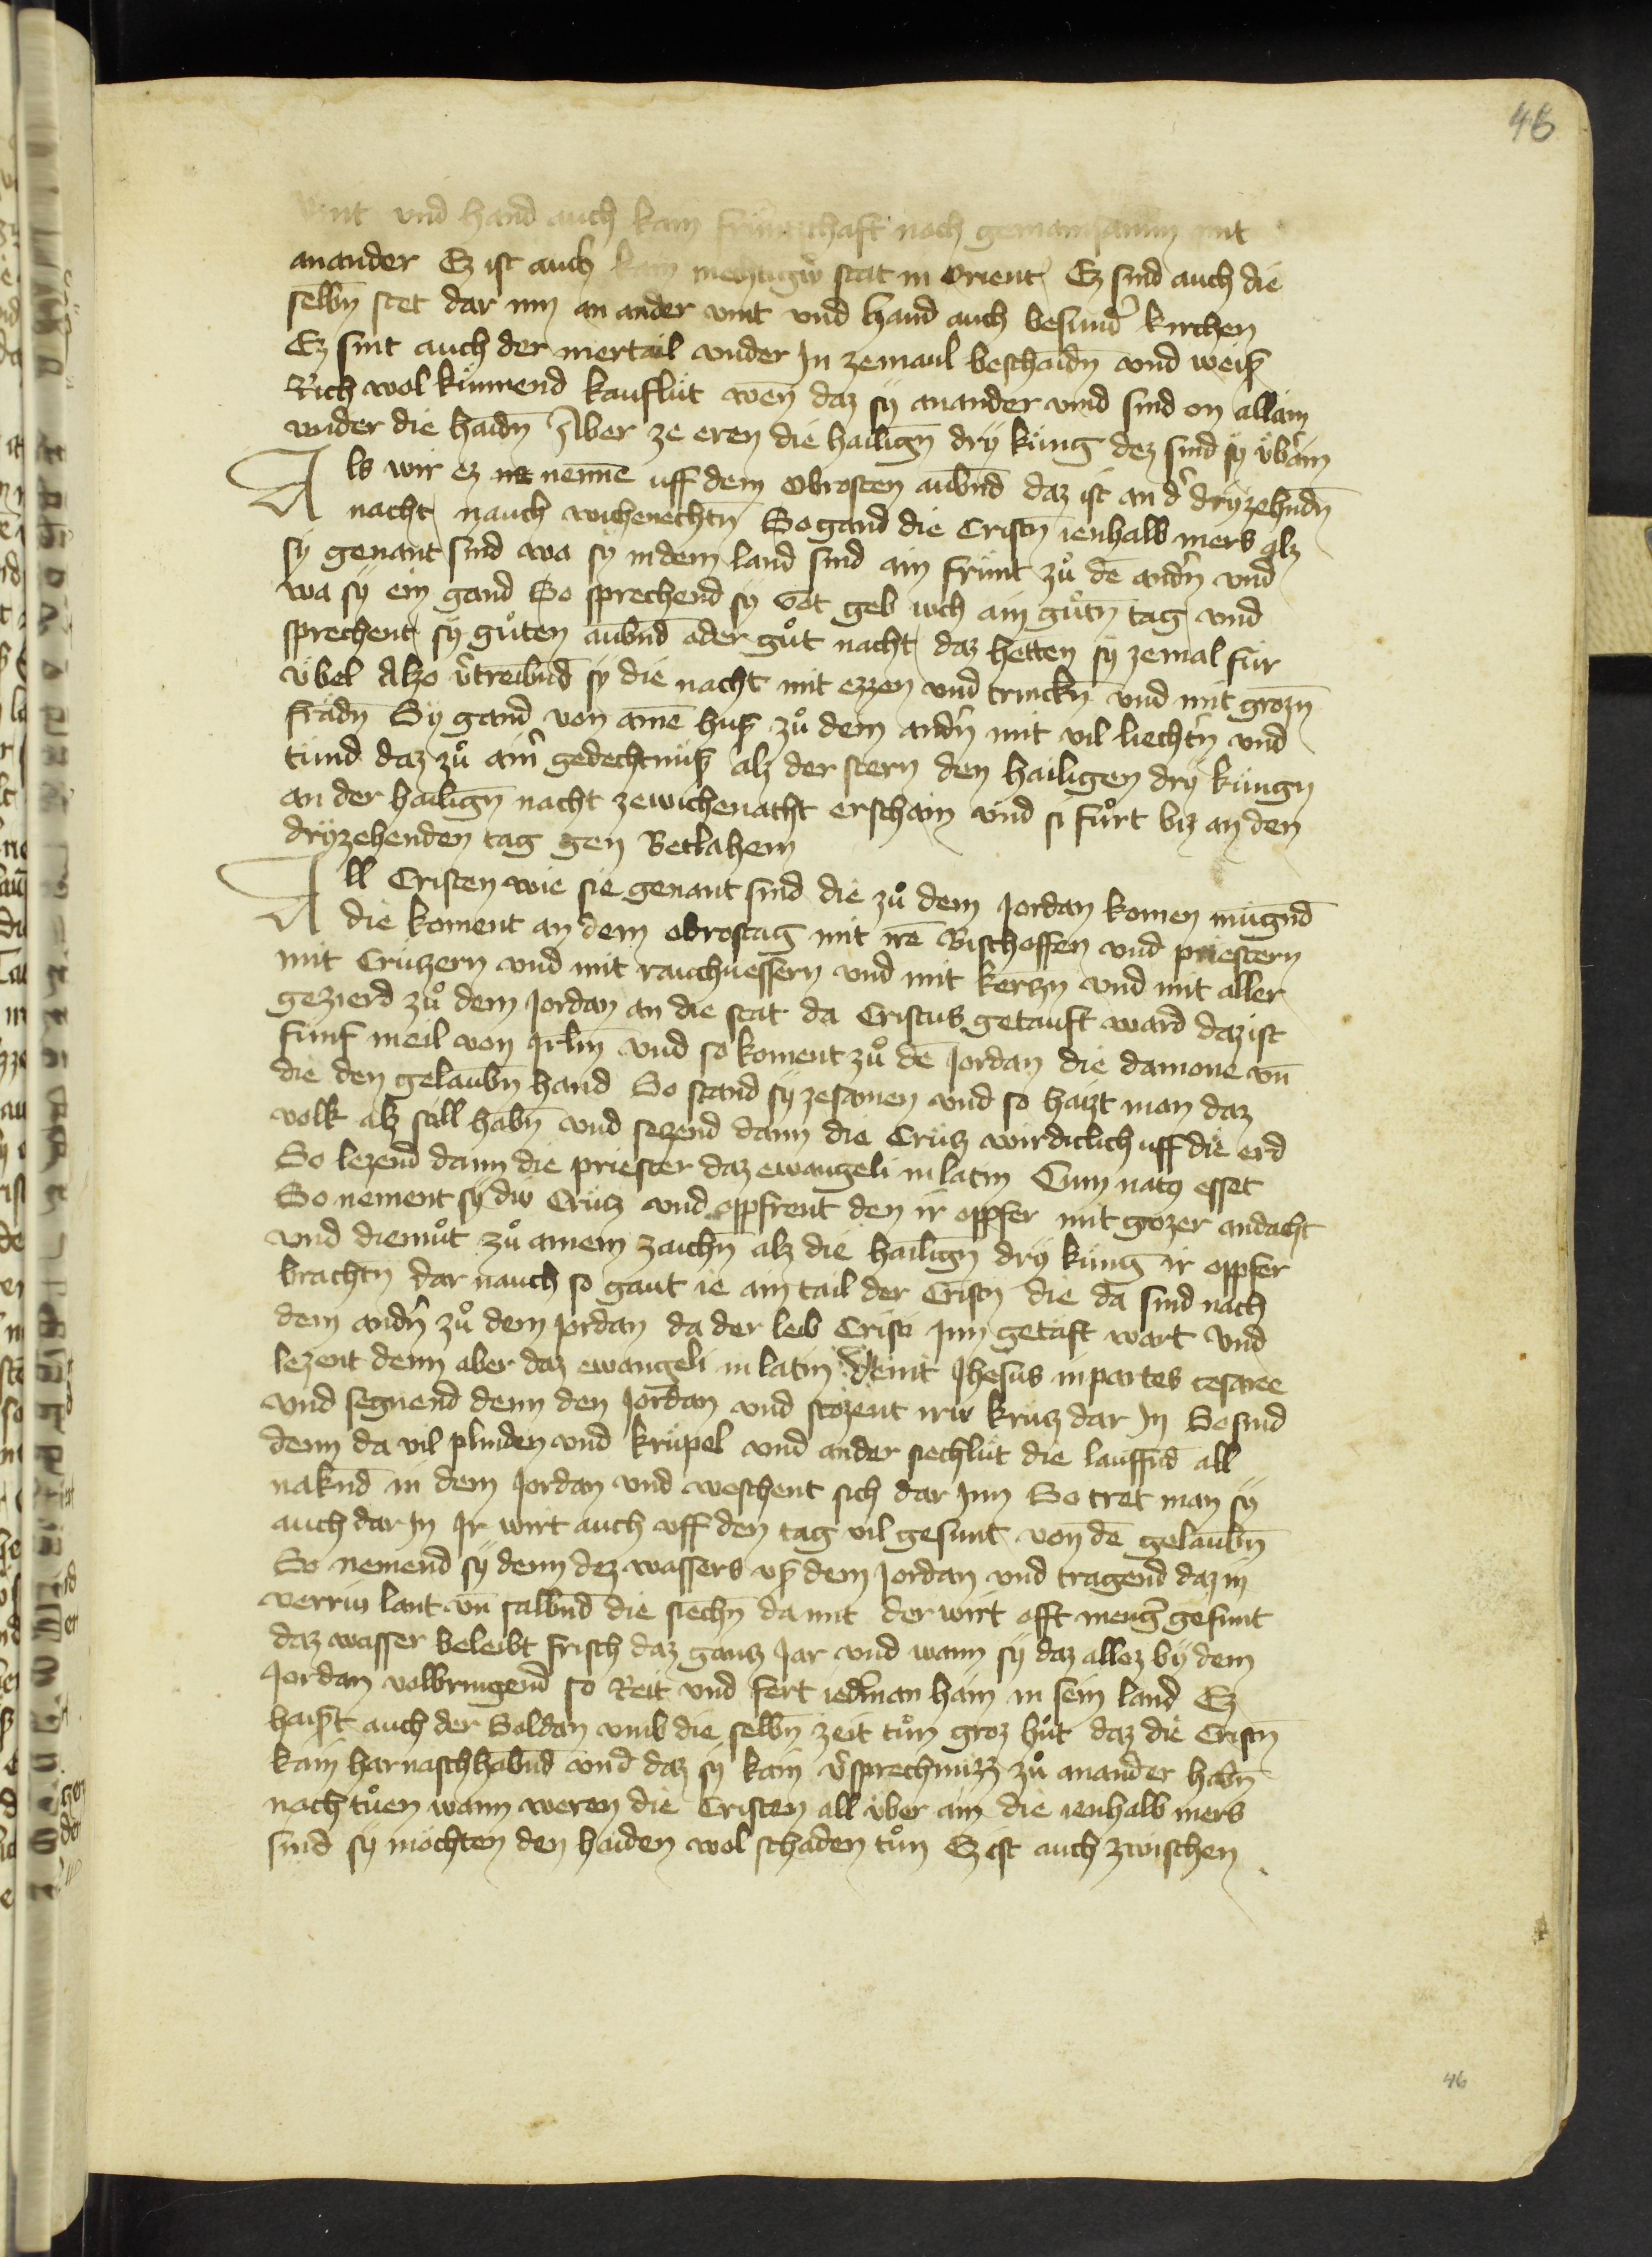 46
vint vnd hand auch kain früntschaft noch gemainsamin mit
anander Ez ist auch kain mechtigiv̈ stat in Orient Ez sind auch die
selbn̄ stet dar inn an ander vint vnd hand auch besund̾ kirchen
Ez sint auch der mertail vnder In zemaul beschaidn̄ vnd weiß
Rich wol künnend kauflüt wen daz sÿ anander vind sind on allain
vnder die haidn̄ Aber ze eren die hailign̄ drÿ küng dez sind sÿ v̈b̾ain
Als wir ez nennē uff dem Obrosten aubnd̄ daz ist an d̾ drÿzehndn̄
nacht nauch wichenechtn̄ So gand die Cristn̄ ienhalb mers alz
sÿ genant sind wa sÿ in dem land sind ain frünt zuͦ dē andn̾ vnd
wa sÿ ein gand So sprechend sÿ Got geb üch ain guͦtn̄ tag vnd
sprechent sÿ guͦten aubnd̄ oder guͦt nacht daz hetten sÿ zemal für
v̈bel Alzo v̾treibnd̄ sÿ die nacht mit ezzen vnd trinckn̄ vnd mit grozn̄
frädn̄ Sÿ gand von ainē huß zuͦ dem andn̾ mit vil liechtn̾ vnd
tünd daz zuͦ ain̾ gedechtnuß alz der stern den hailigen drÿ küngn
an der hailign̄ nacht ze wichenacht erschain vnd si fuͦrt biz an den
drÿzehenden tag gen Betlahem
All Cristen wie sie genant sind die zuͦ dem Jordan komen mügnd̄
die koment an dem obrostag mit irē Bischoffen vnd priestern
mit Crützern vnd mit rauchuessern vnd mit kerczn̄ vnd mit aller
gezierd zuͦ dem Jordan an die stat da Cristus getauft ward daz ist
fünf meil von Jrlm̄ vnd so koment zuͦ dē Jordan die damone vn̄
die den gelaubn̄ hand So stand sÿ zesamen vnd so haizt man daz
volk alz still habn̄ vnd seczend dann die Crütz wirdiclich uff die erd
So lezend dann die priester daz ewangeli in latin Cum natꝰ esset
So nement sÿ diu Crütz vnd oppfrent den ir oppfer mit grozer andacht
vnd diemuͦt zuͦ ainem zaichn̄ alz die hailign̄ drÿ küng ir oppfer
brachtn̄ dar nauch so gaut ie ain tail der Cristn̄ die da sind nach
dem andn̾ zuͦ dem Jordan da der leib Cristi Inn getäft wart vnd
lezent denn aber daz ewangeli in latin Venit Jhesus in partes cesaree
vnd segnend denn den Jordan vnd stozent iriv krütz dar In So sind
denn da vil plinden vnd krüpel vnd ander siechlüt die lauffnd̄ all
naknd̄ in dem Jordan vnd weschent sich dar Inn So tret man sÿ
auch dar In Ir wirt auch uff den tag vil gesunt von dē gelaubn̄
So nemend sÿ denn dez wassers vß dem Jordan vnd tragend daz in
verriu lant vn̄ salbnd̄ die siechn̄ da mit der wirt offt meng̾ gesunt
daz wasser beleibt frisch daz gantz Jar vnd wann sÿ daz allez bÿ dem
Jordan volbringend so Reit vnd fert ied̾man haim in sein land Ez
haißt auch der Soldan vmb die selbn̄ zeit tuͦn groz huͦt daz die Cristn̄
kain harnasch habnd̄ vnd daz sÿ kain v̾sprechnuzz zuͦ anander habn̄
noch tuͦen wann weren die Cristen all v̈ber ain die ienhalb mers
sind sÿ möchten den haiden wol schaden tuͦn Ez ist auch zwischen
46